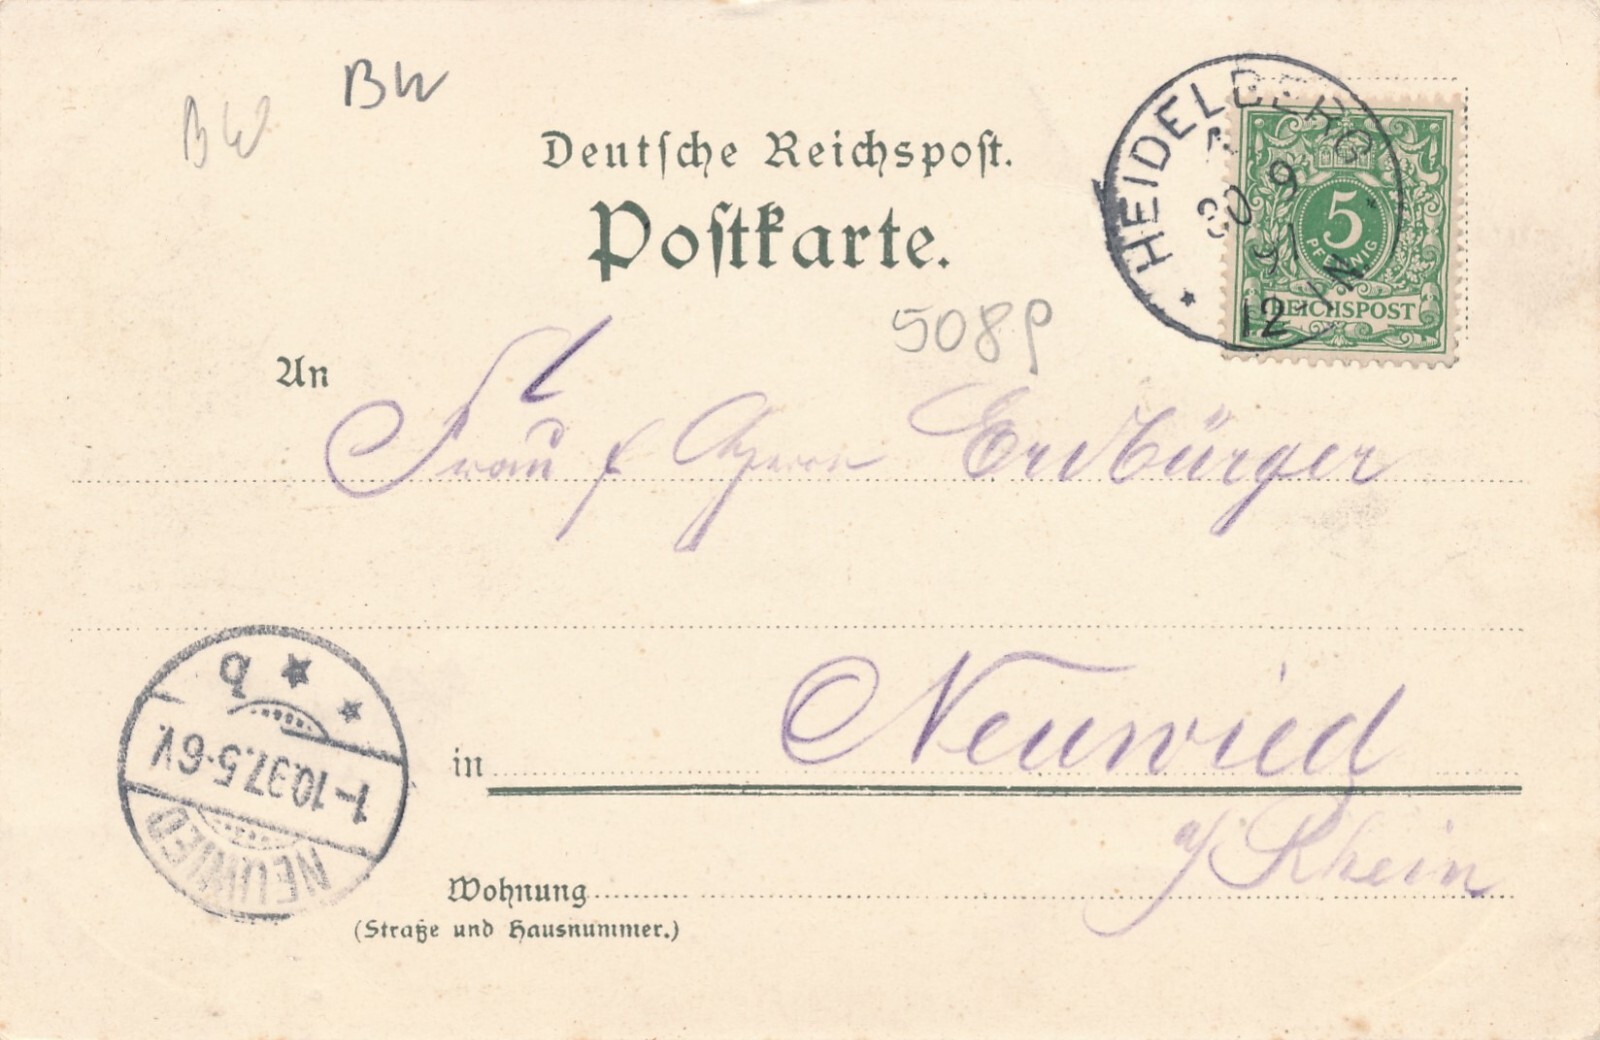 BW
BW
Deutsche Reichspost.
Postkarte.
HEIDELBERG
30 9
12
5
PFENNIG
REICHSPOST
5089
An
Frau
Erdbürger
in Neuwied
a/ Rhein
Wohnung
(Straße und Hausnummer.)
NEUWIED
1-10.97.5-6V.
b